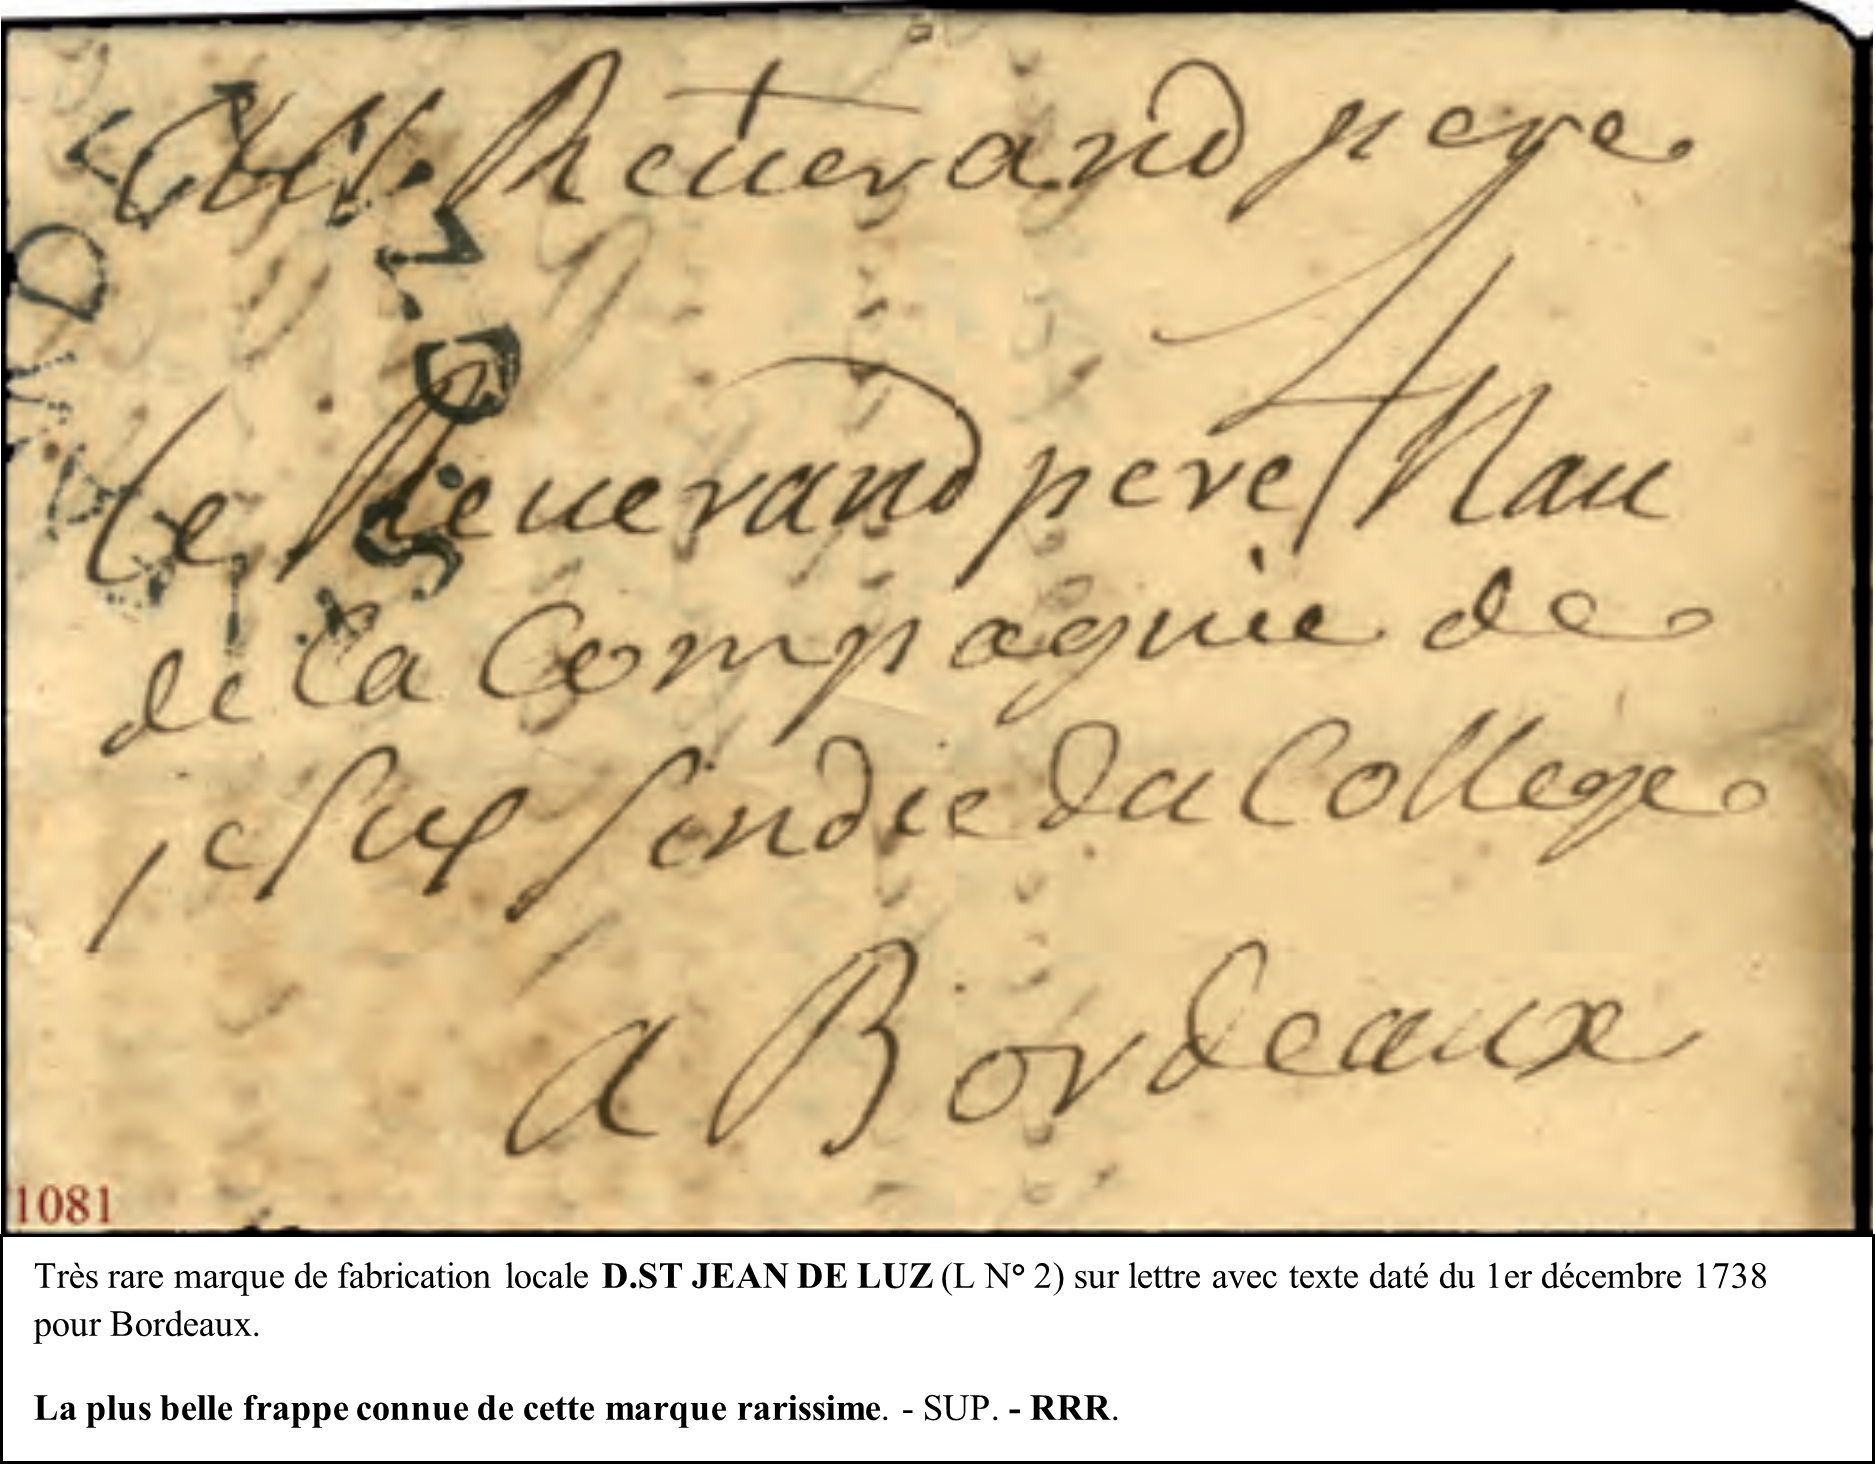 Reuerand pere
Le Reuerand pere Nau
de la Compagnie de
jesus sindic du College
a Bordeaux
1081
Très rare marque de fabrication locale D.ST JEAN DE LUZ (L N° 2) sur lettre avec texte daté du 1er décembre 1738
pour Bordeaux.
La plus belle frappe connue de cette marque rarissime. - SUP. - RRR.